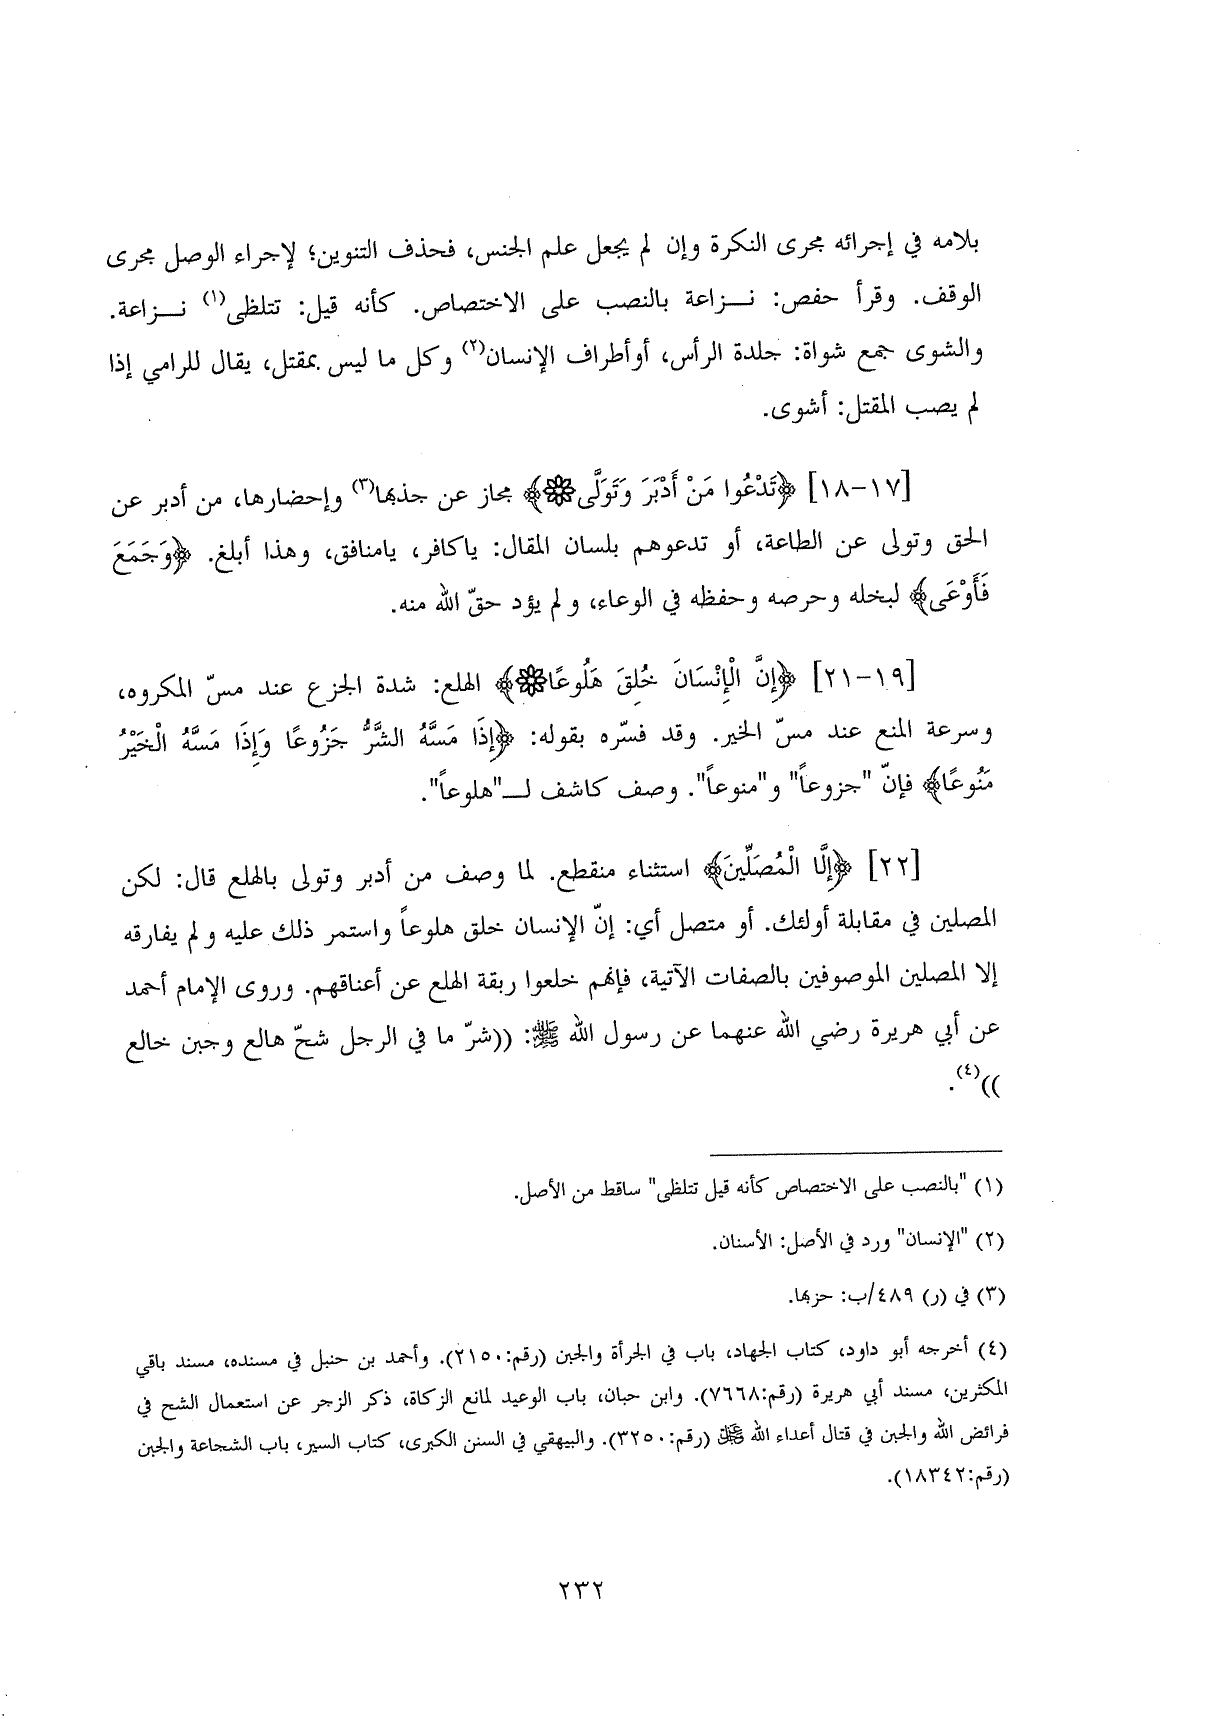 بلامه في إجرائه مجرى النكرة وإن لم يجعل علم الجنس، فحذف التنوين؛ لإجراء الوصل مجرى
الوقف. وقرأ حفص: نـــزاعة بالنصب على الاختصاص. كأنه قيل: تتلظى(١) نـــزاعة.
والشوى جمع شواة: جلدة الرأس، أوأطراف الإنسان(٢) وكل ما ليس بمقتل، يقال للرامي إذا
لم يصب المقتل: أشوى.
[١٧-١٨] ﴿تَدْعُوا مَنْ أَدْبَرَ وَتَوَلَّى۞﴾ مجاز عن جذبها(٣) وإحضارها، من أدبر عن
الحق وتولى عن الطاعة، أو تدعوهم بلسان المقال: ياكافر، يامنافق، وهذا أبلغ. ﴿وَجَمَعَ
فَأَوْعَى﴾ لبخله وحرصه وحفظه في الوعاء، و لم يؤد حقّ الله منه.
[١٩-٢١] ﴿إِنَّ الْإِنْسَانَ خُلِقَ هَلُوعًا۞﴾ الهلع: شدة الجزع عند مسّ المكروه،
وسرعة المنع عند مسّ الخير. وقد فسّره بقوله: ﴿إِذَا مَسَّهُ الشَّرُّ جَزُوعًا وَإِذَا مَسَّهُ الْخَيْرُ
مَنُوعًا﴾ فإنّ "جزوعاً" و"منوعاً". وصف كاشف لـــ"هلوعاً".
[٢٢] ﴿إِلَّا الْمُصَلِّينَ﴾ استثناء منقطع. لما وصف من أدبر وتولى بالهلع قال: لكن
المصلين في مقابلة أولئك. أو متصل أي: إنّ الإنسان خلق هلوعاً واستمر ذلك عليه و لم يفارقه
إلا المصلين الموصوفين بالصفات الآتية، فإنهم خلعوا ربقة الهلع عن أعناقهم. وروى الإمام أحمد
عن أبي هريرة رضي الله عنهما عن رسول الله ﷺ: ((شرّ ما في الرجل شحّ هالع وجبن خالع
))(٤).
(١) "بالنصب على الاختصاص كأنه قيل تتلظى" ساقط من الأصل.
(٢) "الإنسان" ورد في الأصل: الأسنان.
(٣) في (ر) ٤٨٩/ب: حزبها.
(٤) أخرجه أبو داود، كتاب الجهاد، باب في الجرأة والجبن (رقم:٢١٥٠). وأحمد بن حنبل في مسنده، مسند باقي
المكثرين، مسند أبي هريرة (رقم:٧٦٦٨). وابن حبان، باب الوعيد لمانع الزكاة، ذكر الزجر عن استعمال الشح في
فرائض الله والجبن في قتال أعداء الله ﷻ (رقم:٣٢٥٠). والبيهقي في السنن الكبرى، كتاب السير، باب الشجاعة والجبن
(رقم:١٨٣٤٢).
٢٣٢